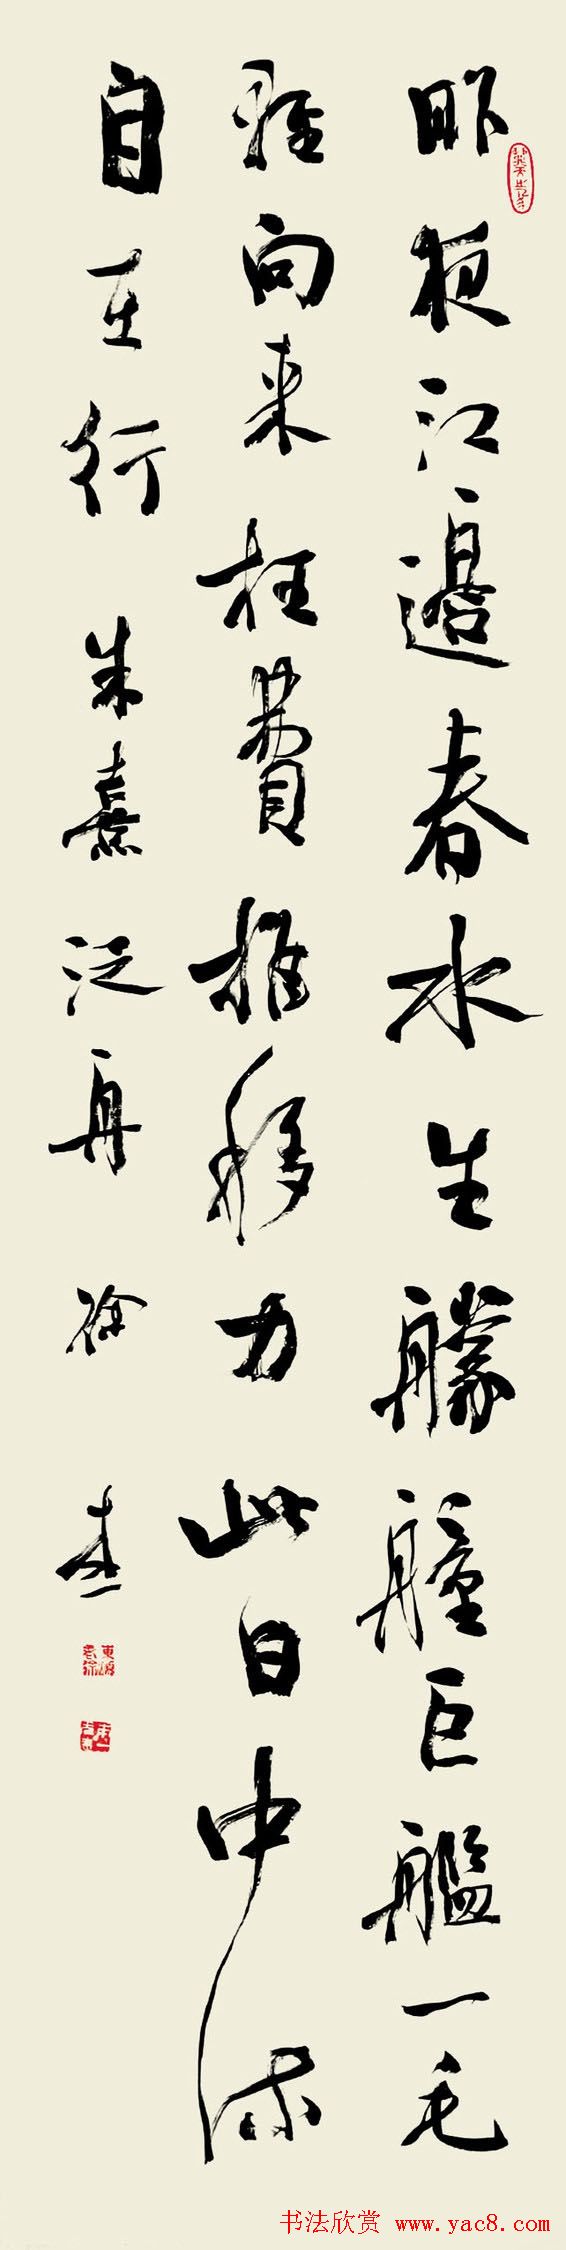 昨夜江邊春水生艨艟巨艦一毛
輕向来枉費推移力此日中流
自在行 朱熹泛舟 徐
书法欣赏 www.yac8.com